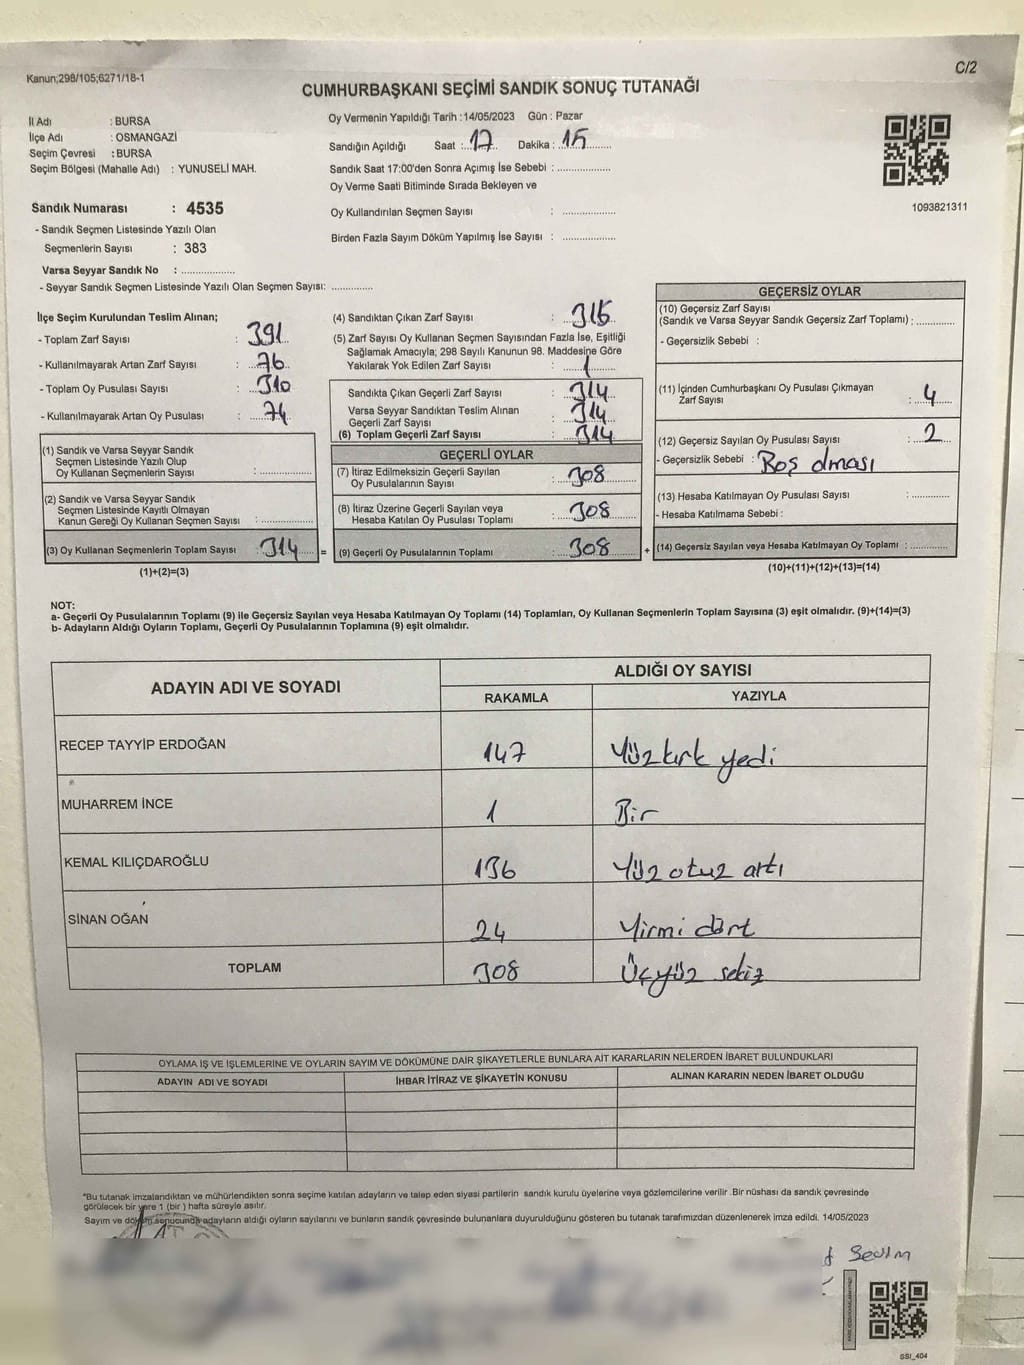 C/2
Kanun;298/105;6271/18-1
CUMHURBAŞKANI SEÇİMİ SANDIK SONUÇ TUTANAĞI
İl Adı : BURSA
İlçe Adı : OSMANGAZİ
Seçim Çevresi : BURSA
Seçim Bölgesi (Mahalle Adı) : YUNUSELİ MAH.
Sandık Numarası : 4535
- Sandık Seçmen Listesinde Yazılı Olan
Seçmenlerin Sayısı : 383
Varsa Seyyar Sandık No : ..................
- Seyyar Sandık Seçmen Listesinde Yazılı Olan Seçmen Sayısı: ..............
Oy Vermenin Yapıldığı Tarih :14/05/2023 Gün : Pazar
Sandığın Açıldığı Saat :..17.. Dakika :..15........
Sandık Saat 17:00'den Sonra Açımış İse Sebebi : ..................
Oy Verme Saati Bitiminde Sırada Bekleyen ve
Oy Kullandırılan Seçmen Sayısı : ..................
Birden Fazla Sayım Döküm Yapılmış İse Sayısı : ..................
1093821311
İlçe Seçim Kurulundan Teslim Alınan;
- Toplam Zarf Sayısı : 391
- Kullanılmayarak Artan Zarf Sayısı : 76
- Toplam Oy Pusulası Sayısı : 310
- Kullanılmayarak Artan Oy Pusulası : 74
(1) Sandık ve Varsa Seyyar Sandık
Seçmen Listesinde Yazılı Olup
Oy Kullanan Seçmenlerin Sayısı : ..............
(2) Sandık ve Varsa Seyyar Sandık
Seçmen Listesinde Kayıtlı Olmayan
Kanun Gereği Oy Kullanan Seçmen Sayısı : ..............
(3) Oy Kullanan Seçmenlerin Toplam Sayısı : 314 =
(1)+(2)=(3)
(4) Sandıktan Çıkan Zarf Sayısı : 315
(5) Zarf Sayısı Oy Kullanan Seçmen Sayısından Fazla İse, Eşitliği
Sağlamak Amacıyla; 298 Sayılı Kanunun 98. Maddesine Göre
Yakılarak Yok Edilen Zarf Sayısı : 1
Sandıkta Çıkan Geçerli Zarf Sayısı : 314
Varsa Seyyar Sandıktan Teslim Alınan
Geçerli Zarf Sayısı : 314
(6) Toplam Geçerli Zarf Sayısı : 314
GEÇERLİ OYLAR
(7) İtiraz Edilmeksizin Geçerli Sayılan
Oy Pusulalarının Sayısı : 308
(8) İtiraz Üzerine Geçerli Sayılan veya
Hesaba Katılan Oy Pusulası Toplamı : 308
(9) Geçerli Oy Pusulalarının Toplamı : 308 +
GEÇERSİZ OYLAR
(10) Geçersiz Zarf Sayısı
(Sandık ve Varsa Seyyar Sandık Geçersiz Zarf Toplamı) : ............
- Geçersizlik Sebebi :
(11) İçinden Cumhurbaşkanı Oy Pusulası Çıkmayan
Zarf Sayısı : 4
(12) Geçersiz Sayılan Oy Pusulası Sayısı : 2
- Geçersizlik Sebebi : Boş olması
(13) Hesaba Katılmayan Oy Pusulası Sayısı : ............
- Hesaba Katılmama Sebebi :
(14) Geçersiz Sayılan veya Hesaba Katılmayan Oy Toplamı : ............
(10)+(11)+(12)+(13)=(14)
NOT:
a- Geçerli Oy Pusulalarının Toplamı (9) ile Geçersiz Sayılan veya Hesaba Katılmayan Oy Toplamı (14) Toplamları, Oy Kullanan Seçmenlerin Toplam Sayısına (3) eşit olmalıdır. (9)+(14)=(3)
b- Adayların Aldığı Oyların Toplamı, Geçerli Oy Pusulalarının Toplamına (9) eşit olmalıdır.
ADAYIN ADI VE SOYADI ALDIĞI OY SAYISI
RAKAMLA YAZIYLA
RECEP TAYYİP ERDOĞAN 147 Yüz kırk yedi
MUHARREM İNCE 1 Bir
KEMAL KILIÇDAROĞLU 136 Yüz otuz artı
SİNAN OĞAN 24 Yirmi dört
TOPLAM 308 Üçyüz sekiz
OYLAMA İŞ VE İŞLEMLERİNE VE OYLARIN SAYIM VE DÖKÜMÜNE DAİR ŞİKAYETLERLE BUNLARA AİT KARARLARIN NELERDEN İBARET BULUNDUKLARI
ADAYIN ADI VE SOYADI İHBAR İTİRAZ VE ŞİKAYETİN KONUSU ALINAN KARARIN NEDEN İBARET OLDUĞU
*Bu tutanak imzalandıktan ve mühürlendikten sonra seçime katılan adayların ve talep eden siyasi partilerin sandık kurulu üyelerine veya gözlemcilerine verilir .Bir nüshası da sandık çevresinde
görülecek bir yere 1 (bir ) hafta süreyle asılır.
Sayım ve döküm sonucunda adayların aldığı oyların sayılarını ve bunların sandık çevresinde bulunanlara duyurulduğunu gösteren bu tutanak tarafımızdan düzenlenerek imza edildi. 14/05/2023
Sevim
SSI_404